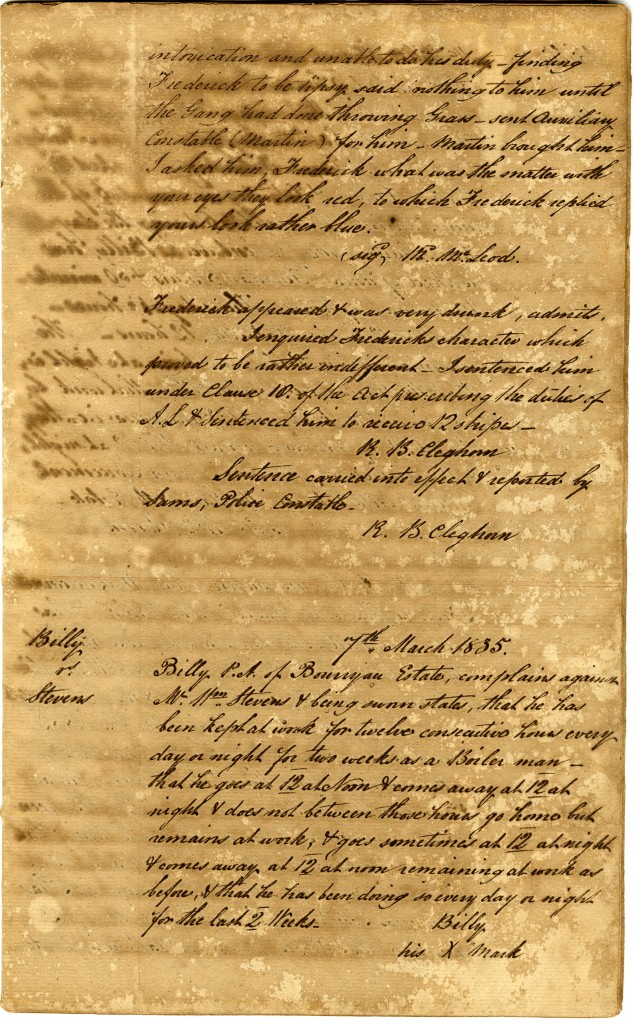 intoxication and unable to do his duty – finding
Frederick to be tipsy said nothing to him until
the Gang had done throwing Grass – sent Auxiliary
Constable (Martin) for him – Martin brought him –
I asked him, Frederick what was the matter with
your eyes they look red, to which Frederick replied
yours look rather blue.
(sigd) McLeod.
Frederick appeared & was very drunk, admits.
I enquired Fredericks character which
proved to be rather indifferent – I sentenced him
under Clause 10. of the Act prescribing the duties of
A.L & Sentenced him to receive 12 stripes –
R. B. Cleghorn
Sentence carried into effect & reported by
Sams, Police Constable –
R. B. Cleghorn
7th March 1835.
Billy
vs
Stevens
Billy P.A. of Bourryau Estate, complains against
Mr. Wm Stevens & being sworn states, that he has
been kept at work for twelve consecutive hours every
day or night for two weeks as a Boiler man –
that he goes at 12 at Noon & comes away at 12 at
night & does not between those hours go home but
remains at work, & goes sometimes at 12 at night
& comes away at 12 at noon remaining at work as
before, & that he has been doing so every day or night
for the last 2 Weeks –
Billy
his X Mark